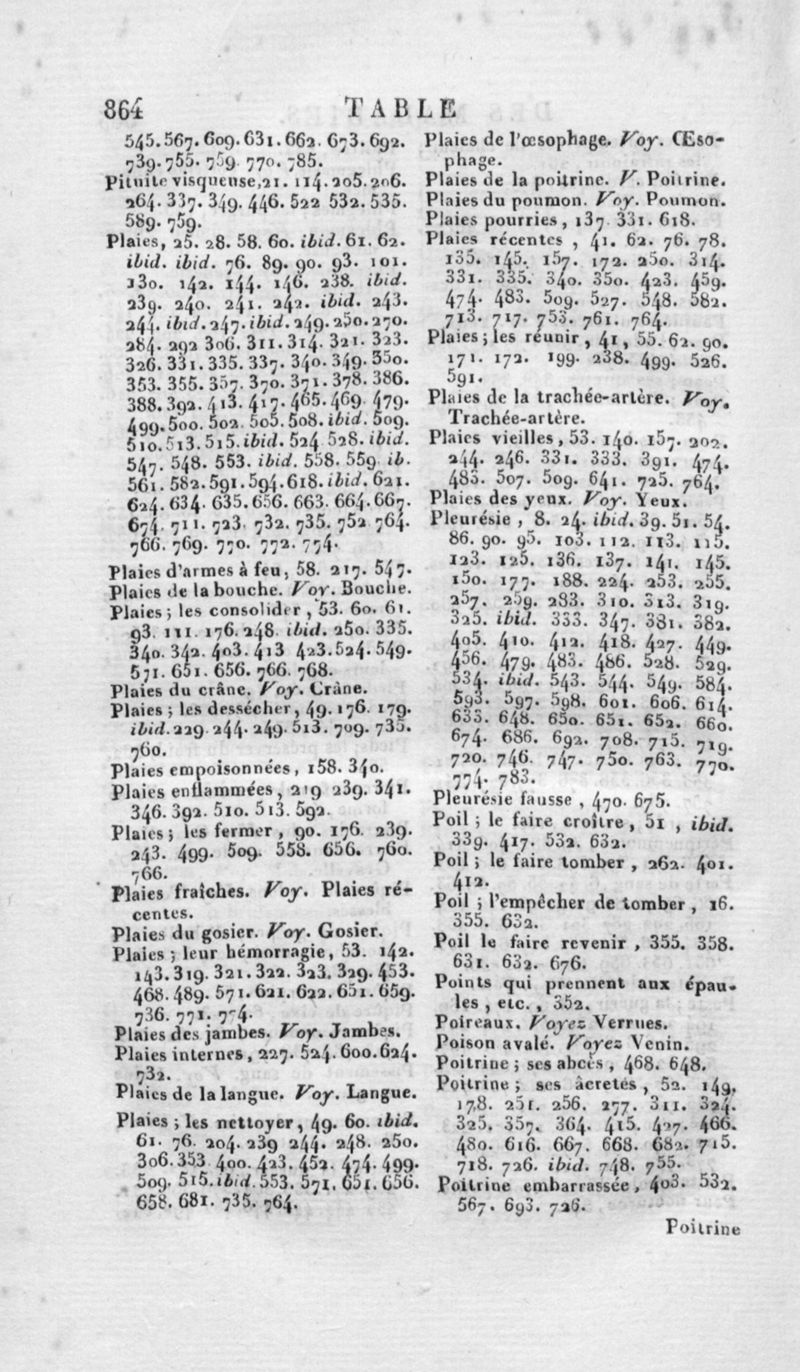 864
TABLE
545. 567. 609. 631. 662. 673. 692.
739. 755. 759. 770. 785.
Pituite visqueuse, 21. 114. 205. 206.
264. 337. 349. 446. 522 532. 535.
589. 759.
Plaies, 25. 28. 58. 60. ibid. 61. 62.
ibid. ibid. 76. 89. 90. 93. 101.
130. 142. 144. 146. 238. ibid.
239. 240. 241. 242. ibid. 243.
244. ibid. 247. ibid. 249. 250. 270.
284. 292 306. 311. 314. 321. 323.
326. 331. 335. 337. 340. 349. 350.
353. 355. 357. 370. 371. 378. 386.
388. 392. 413. 417. 465. 469. 479.
499. 500. 502. 505. 508. ibid. 509.
510. 513. 515. ibid. 524 528. ibid.
547. 548. 553. ibid. 558. 559. ib.
561. 582. 591. 594. 618. ibid. 621.
624. 634. 635. 656. 663. 664. 667.
674. 711. 723. 732. 735. 752 764.
766. 769. 770. 772. 774.
Plaies d'armes à feu, 58. 217. 547.
Plaies de la bouche. Voy. Bouche.
Plaies ; les consolider, 53. 60. 61.
93. 111. 176. 248. ibid. 250. 335.
340. 342. 403. 413 423. 524. 549.
571. 651. 656. 766. 768.
Plaies du crâne. Voy. Crâne.
Plaies ; les dessécher, 49. 176. 179.
ibid. 229. 244. 249. 513. 709. 735.
760.
Plaies empoisonnées, 158. 340.
Plaies enflammées, 219 239. 341.
346. 392. 510. 513. 592.
Plaies ; les fermer, 90. 176. 239.
243. 499. 509. 558. 656. 760.
766.
Plaies fraîches. Voy. Plaies ré-
centes.
Plaies du gosier. Voy. Gosier.
Plaies ; leur hémorragie, 53. 142.
143. 319. 321. 322. 323. 329. 453.
468. 489. 571. 621. 622. 651. 659.
736. 771. 774.
Plaies des jambes. Voy. Jambes.
Plaies internes, 227. 524. 600. 624.
732.
Plaies de la langue. Voy. Langue.
Plaies ; les nettoyer, 49. 60. ibid.
61. 76. 204. 239 244. 248. 250.
306. 353 400. 423. 452. 474. 499.
509. 515. ibid. 553. 571. 651. 656.
658. 681. 735. 764.
Plaies de l'œsophage. Voy. Œso-
phage.
Plaies de la poitrine. V. Poitrine.
Plaies du poumon. Voy. Poumon.
Plaies pourries, 137 331. 618.
Plaies récentes, 41. 62. 76. 78.
135. 145. 157. 172. 250. 314.
331. 335. 340. 350. 423. 459.
474. 483. 509. 527. 548. 582.
713. 717. 753. 761. 764.
Plaies ; les réunir, 41, 55. 62. 90.
171. 172. 199. 238. 499. 526.
591.
Plaies de la trachée-artère. Voy.
Trachée-artère.
Plaies vieilles, 53. 140. 157. 202.
244. 246. 331. 333. 391. 474.
483. 507. 509. 641. 725. 764.
Plaies des yeux. Voy. Yeux.
Pleurésie, 8. 24. ibid. 39. 51. 54.
86. 90. 95. 103. 112. 113. 115.
123. 125. 136. 137. 141. 145.
150. 177. 188. 224. 253. 255.
257. 259. 283. 310. 313. 319.
325. ibid. 333. 347. 381. 382.
405. 410. 412. 418. 427. 449.
456. 479. 483. 486. 528. 529.
534. ibid. 543. 544. 549. 584.
593. 597. 598. 601. 606. 614.
635. 648. 650. 651. 652. 660.
674. 686. 692. 708. 715. 719.
720. 746. 747. 750. 763. 770.
774. 783.
Pleurésie fausse, 470. 675.
Poil ; le faire croître, 51, ibid.
339. 417. 532. 632.
Poil ; le faire tomber, 262. 401.
412.
Poil ; l'empêcher de tomber, 16.
355. 632.
Poil le faire revenir, 355. 358.
631. 632. 676.
Points qui prennent aux épau-
les, etc., 352.
Poireaux. Voyez Verrues.
Poison avalé. Voyez Venin.
Poitrine ; ses abcès, 468. 648.
Poitrine ; ses âcretés, 52. 149.
178. 251. 256. 277. 311. 324.
325. 357. 364. 415. 427. 466.
480. 616. 667. 668. 682. 715.
718. 726. ibid. 748. 755.
Poitrine embarrassée, 403. 532.
567. 693. 726.
Poitrine